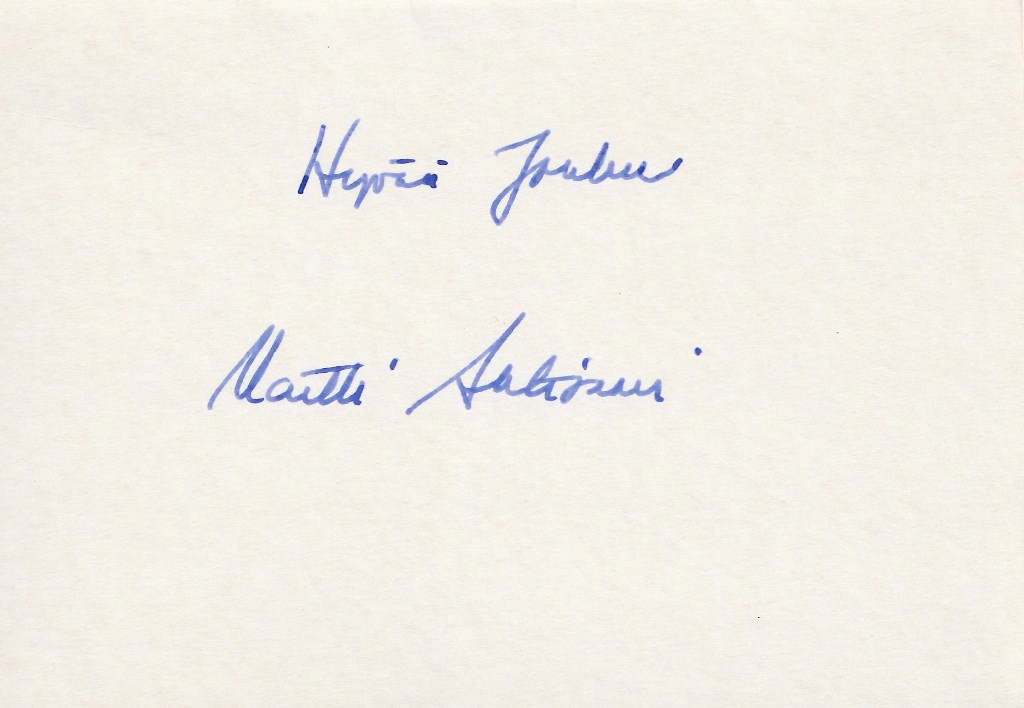 Hyvää Joulua
Martti Ahtisaari